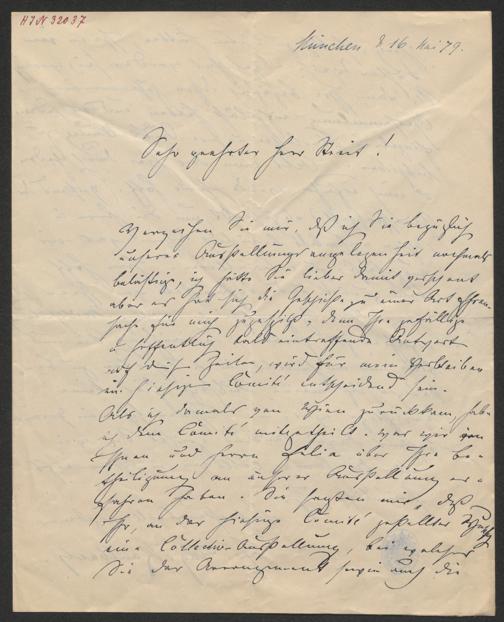 HIN 32037
München d 16. Mai 79.
Sehr geehrter Herr
Verzeihen Sie mir, daß ich Sie bezüglich
unserer Ausstellungsangelegenheit nochmals
belästige, ich hätte Sie lieber damit verschont
aber es hat sich die Geschichte zu einer Art Ehren-
sache für mich zugespitzt, denn Ihre gefällige
u hoffentlich bald eintreffende Antwort
auf diese Zeilen, wird für mein Verbleiben
im hiesigen Comité entscheidend sein.
Als ich damals von Wien zurückkam habe
ich dem Comité mitgetheilt, was wir von
Ihnen und Herrn über Ihre Be-
theiligung an unserer Ausstellung er-
fahren haben. Sie sagten mir, daß
Ihr, an das hiesige Comité gestellter
eine Collectiv-Ausstellung, bei welcher
Sie das Arrangement sowie auch die